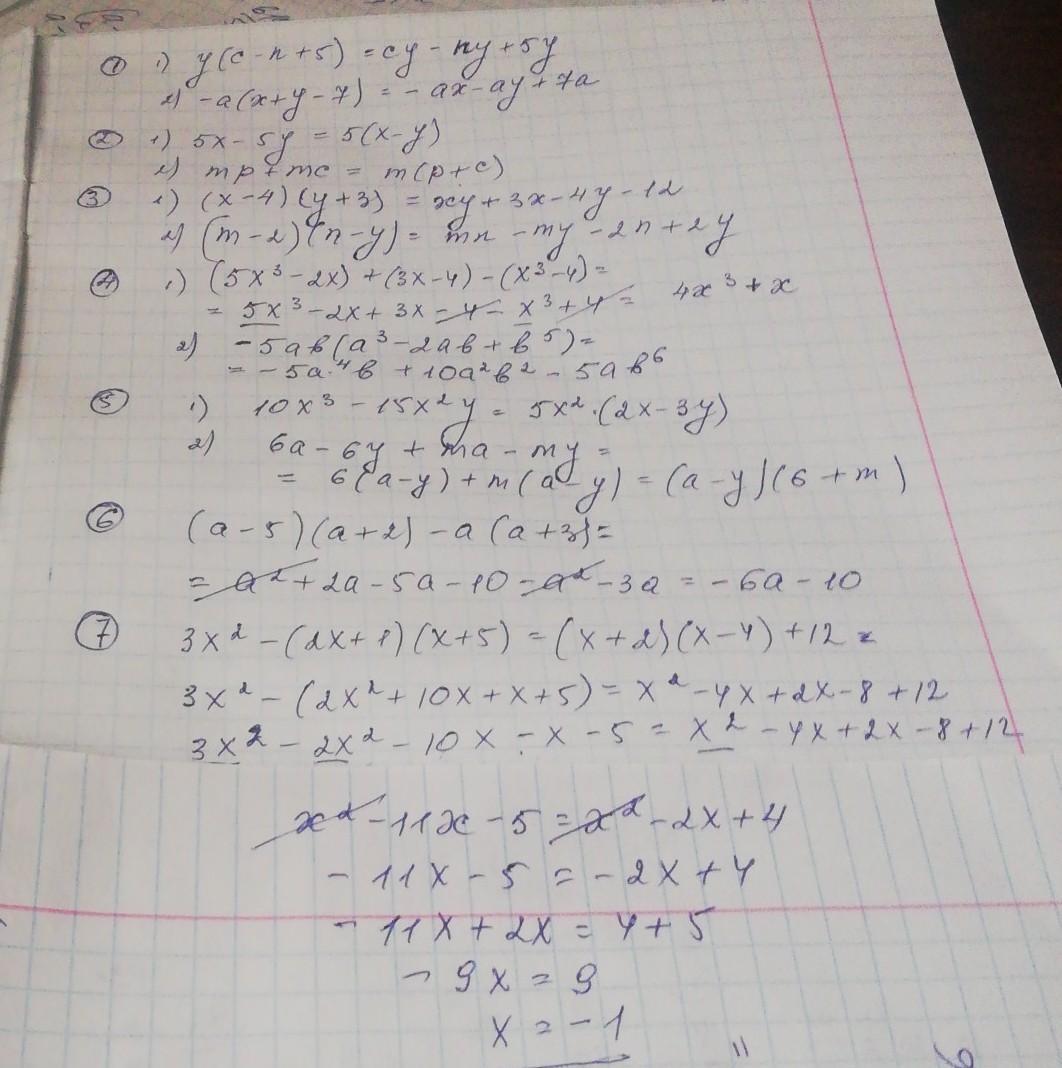 ① 1) y(c-n+5) = cy - ny + 5y
2) -a(x+y-7) = -ax-ay+7a
② 1) 5x-5y = 5(x-y)
2) mp+mc = m(p+c)
③ 1) (x-4)(y+3) = xy+3x-4y-12
2) (m-2)(n-y) = mn -my -2n+2y
④ 1) (5x³-2x)+(3x-4)-(x³-4)=
= 5x³-2x+3x-4-x³+4= 4x³+x
2) -5ab(a³-2ab+b⁵)=
= -5a⁴b +10a²b² - 5ab⁶
⑤ 1) 10x³-15x²y = 5x²·(2x-3y)
2) 6a-6y+ma-my=
= 6(a-y)+m(a-y)=(a-y)(6+m)
⑥ (a-5)(a+2)-a(a+3)=
= a²+2a-5a-10-a²-3a = -6a-10
⑦ 3x²-(2x+1)(x+5)=(x+2)(x-4)+12
3x²-(2x²+10x+x+5)=x²-4x+2x-8+12
3x²-2x²-10x-x-5=x²-4x+2x-8+12
x²-11x-5=x²-2x+4
-11x-5=-2x+4
-11x+2x=4+5
-9x=9
x=-1